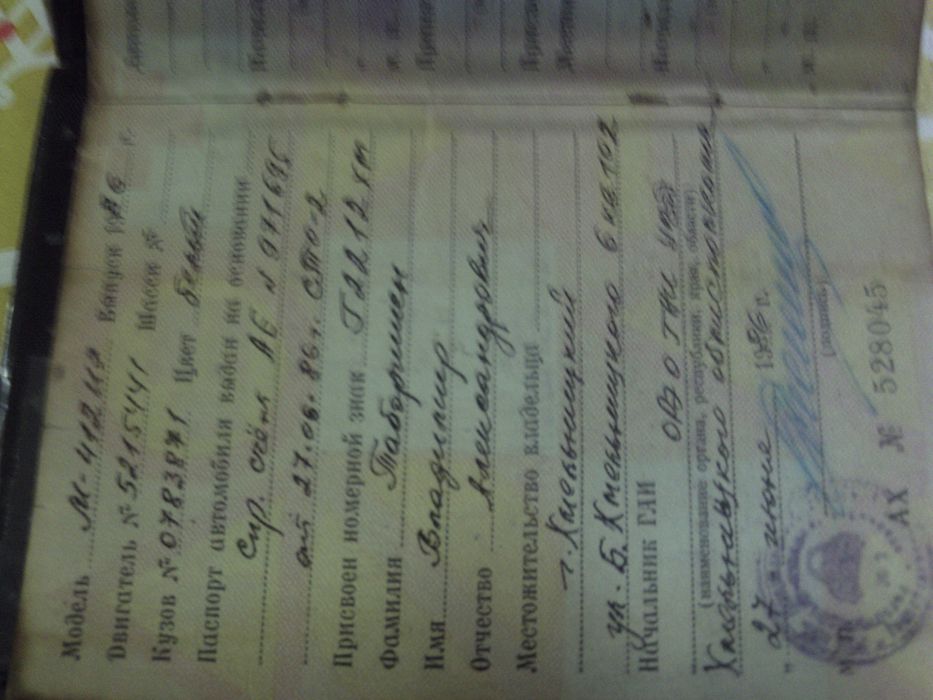 Модель М-412ИЭ Выпуск 1986 г.
Двигатель № 5215441 Шасси №
Кузов № 0783871 Цвет белый
Паспорт автомобиля выдан на основании
спр. счёт АЕ № 971695
от 27.06.86 г. СТО-2
Присвоен номерной знак Г2212ХМ
Фамилия
Имя Владимир
Отчество Александрович
Местожительство владельца
г. Хмельницкий
ул. Б. Хмельницкого 6 кв 102
Начальник ГАИ ОВО ГАИ УВД
(наименование органа, республики, края, области)
Хмельницкого облисполкома
" 27 " июня 1986 г.
(подпись)
М. П.
АХ № 528045